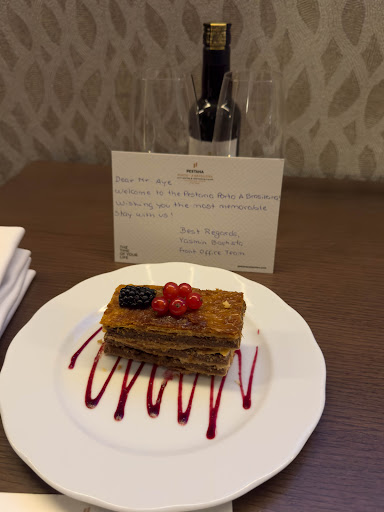 PESTANA
Dear Mr. Aye,
Welcome to the Pestana Porto A Brasileira,
Wishing you the most memorable
Stay with us!
Best Regards,
Yasmin
Front Office Team
THE
TIME
OF YOUR
LIFE